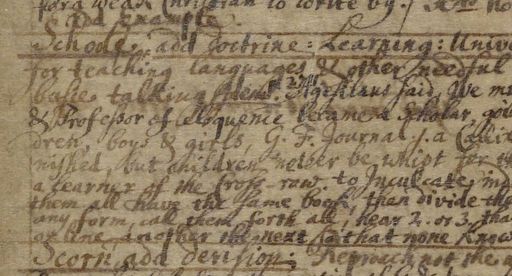 for a weak Christian to write by.
add Example
Schools, add doctrine: Learning: Univ
for teaching languages & other needful
babes talking Agesilaus said, We m
& Professor of Eloquence became a Scholar, go
dren, boys & girls, G. F. Journal
nished, but children not be whipt for
a learner of the Cross-row. to Inculcate
them all have the same book, then divide the
any form, call them forth all, hear 2. or 3, tha
or line another the next so that none know
Scorn, add derision: Reproach not the